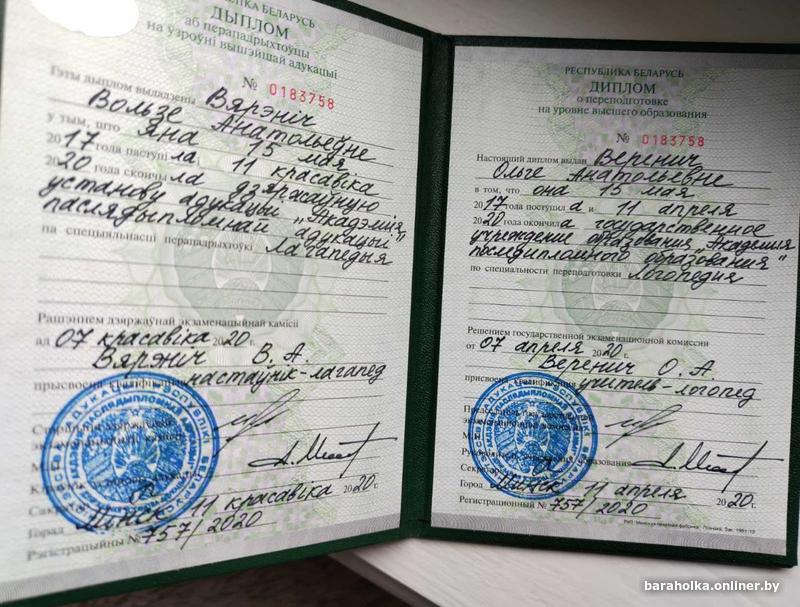 РЭСПУБЛІКА БЕЛАРУСЬ
ДЫПЛОМ
аб перападрыхтоўцы
на ўзроўні вышэйшай адукацыі
№ 0183758
Гэты дыплом выдадзены Вярэніч
Вользе Анатольеўне
у тым, што яна 15 мая
2017 года паступіла і 11 красавіка
2020 года скончыла дзяржаўную
установу адукацыі "Акадэмія
паслядыпломнай адукацыі"
па спецыяльнасці перападрыхтоўкі Лагапедыя
Рашэннем дзяржаўнай экзаменацыйнай камісіі
ад 07 красавіка 2020 г.
Вярэніч В. А.
прысвоена кваліфікацыя настаўнік-лагапед
Старшыня дзяржаўнай
экзаменацыйнай камісіі
М.П.
Горад Мінск 11 красавіка 2020 г.
Рэгістрацыйны № 757/2020
РЕСПУБЛИКА БЕЛАРУСЬ
ДИПЛОМ
о переподготовке
на уровне высшего образования
№ 0183758
Настоящий диплом выдан Веренич
Ольге Анатольевне
в том, что она 15 мая
2017 года поступила и 11 апреля
2020 года окончила государственное
учреждение образования "Академия
последипломного образования"
по специальности переподготовки Логопедия
Решением государственной экзаменационной комиссии
от 07 апреля 2020 г.
Веренич О. А.
присвоена квалификация учитель-логопед
Председатель государственной
экзаменационной комиссии
М.П.
Руководитель учреждения образования
Секретарь
Город Минск 11 апреля 2020 г.
Регистрационный № 757/2020
baraholka.onliner.by